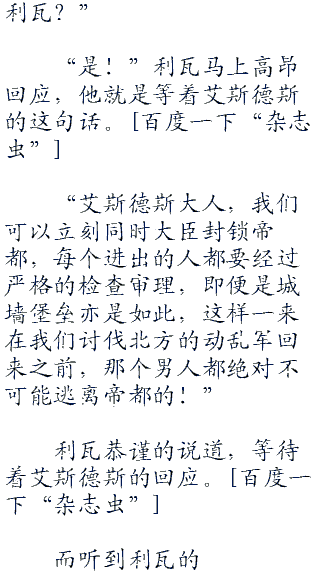 利瓦？”
“是！”利瓦马上高昂
回应，他就是等着艾斯德斯
的这句话。[百度一下“杂志
虫”]
“艾斯德斯大人，我们
可以立刻同时大臣封锁帝
都，每个进出的人都要经过
严格的检查审理，即便是城
墙堡垒亦是如此，这样一来
在我们讨伐北方的动乱军回
来之前，那个男人都绝对不
可能逃离帝都的！”
利瓦恭谨的说道，等待
着艾斯德斯的回应。[百度一
下“杂志虫”]
而听到利瓦的